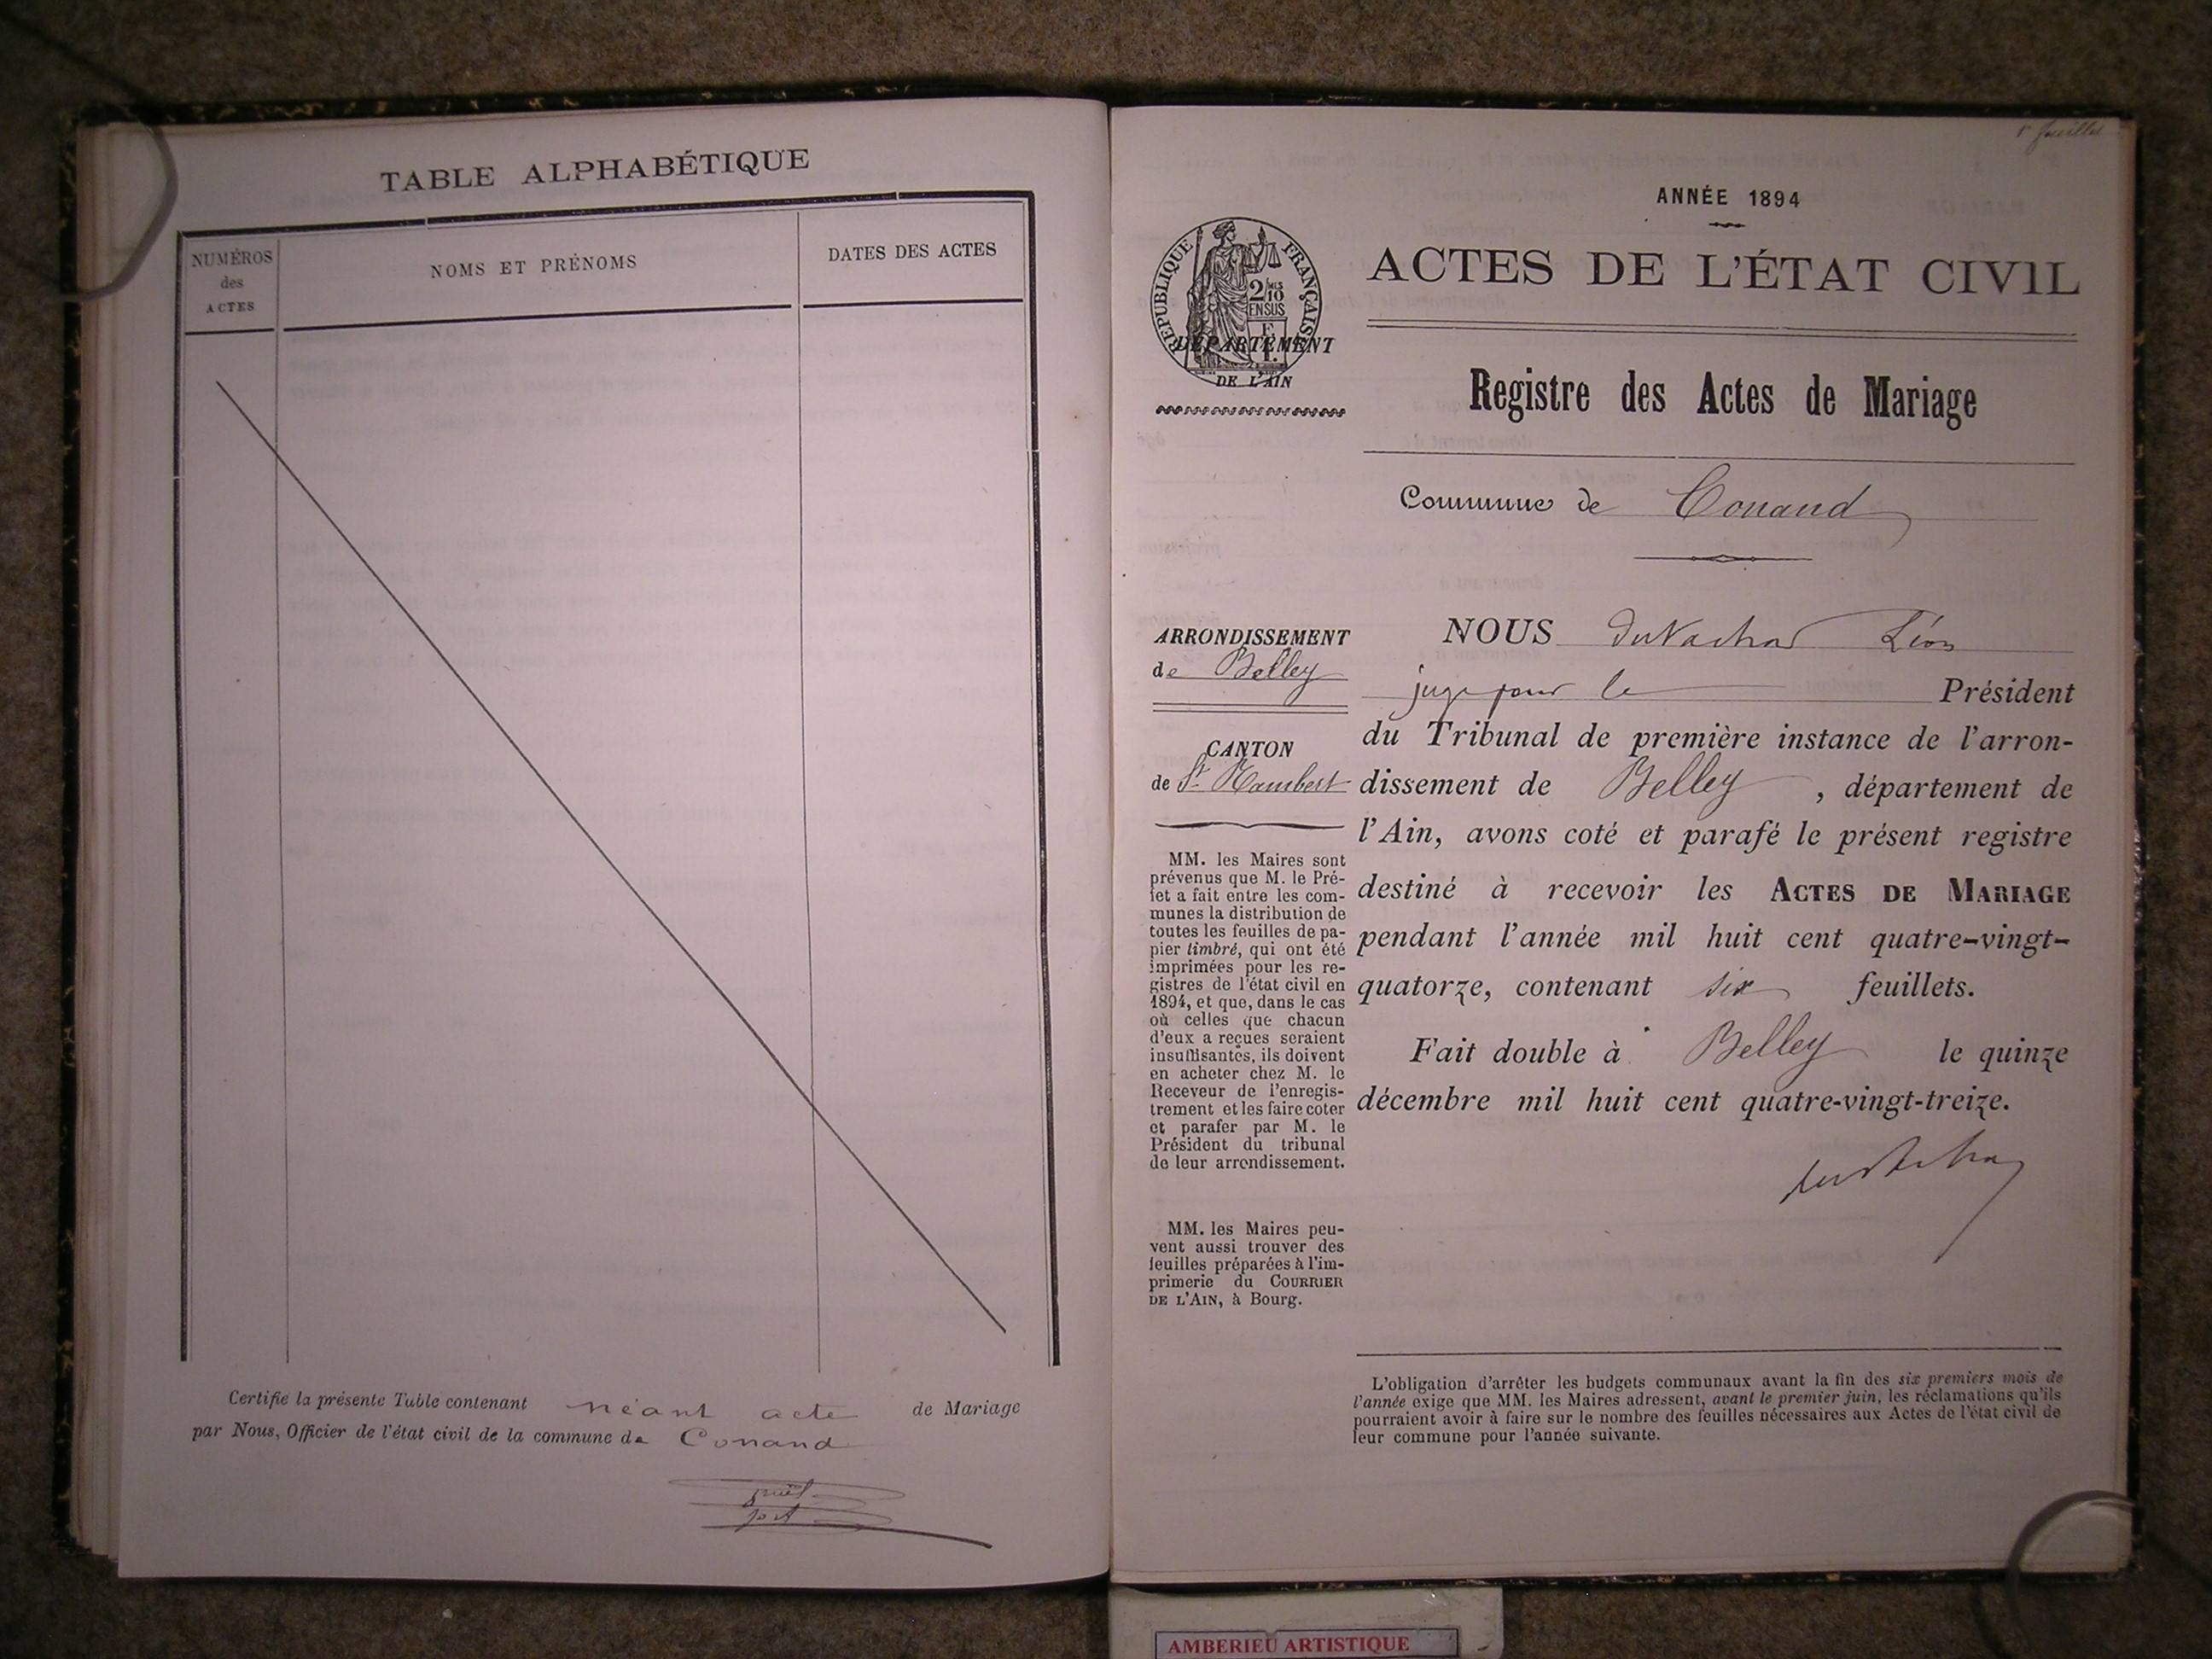 TABLE ALPHABÉTIQUE
NUMÉROS
des
ACTES
NOMS ET PRÉNOMS
DATES DES ACTES
Certifie la présente Table contenant néant acte de Mariage
par Nous, Officier de l'état civil de la commune de Conand
ANNÉE 1894
RÉPUBLIQUE FRANÇAISE
2/10
EN SUS
DÉPARTEMENT
DE L'AIN
ACTES DE L'ÉTAT CIVIL
Registre des Actes de Mariage
Commune de Conand
ARRONDISSEMENT
de Belley
CANTON
de St Rambert
MM. les Maires sont
prévenus que M. le Pré-
fet a fait entre les com-
munes la distribution de
toutes les feuilles de pa-
pier timbré, qui ont été
imprimées pour les re-
gistres de l'état civil en
1894, et que, dans le cas
où celles que chacun
d'eux a reçues seraient
insuffisantes, ils doivent
en acheter chez M. le
Receveur de l'enregis-
trement et les faire coter
et parafer par M. le
Président du tribunal
de leur arrondissement.
MM. les Maires peu-
vent aussi trouver des
feuilles préparées à l'im-
primerie du COURRIER
DE L'AIN, à Bourg.
NOUS Léon
juge pour le Président
du Tribunal de première instance de l'arron-
dissement de Belley, département de
l'Ain, avons coté et parafé le présent registre
destiné à recevoir les ACTES DE MARIAGE
pendant l'année mil huit cent quatre-vingt-
quatorze, contenant six feuillets.
Fait double à Belley le quinze
décembre mil huit cent quatre-vingt-treize.
L'obligation d'arrêter les budgets communaux avant la fin des six premiers mois de
l'année exige que MM. les Maires adressent, avant le premier juin, les réclamations qu'ils
pourraient avoir à faire sur le nombre des feuilles nécessaires aux Actes de l'état civil de
leur commune pour l'année suivante.
AMBERIEU ARTISTIQUE